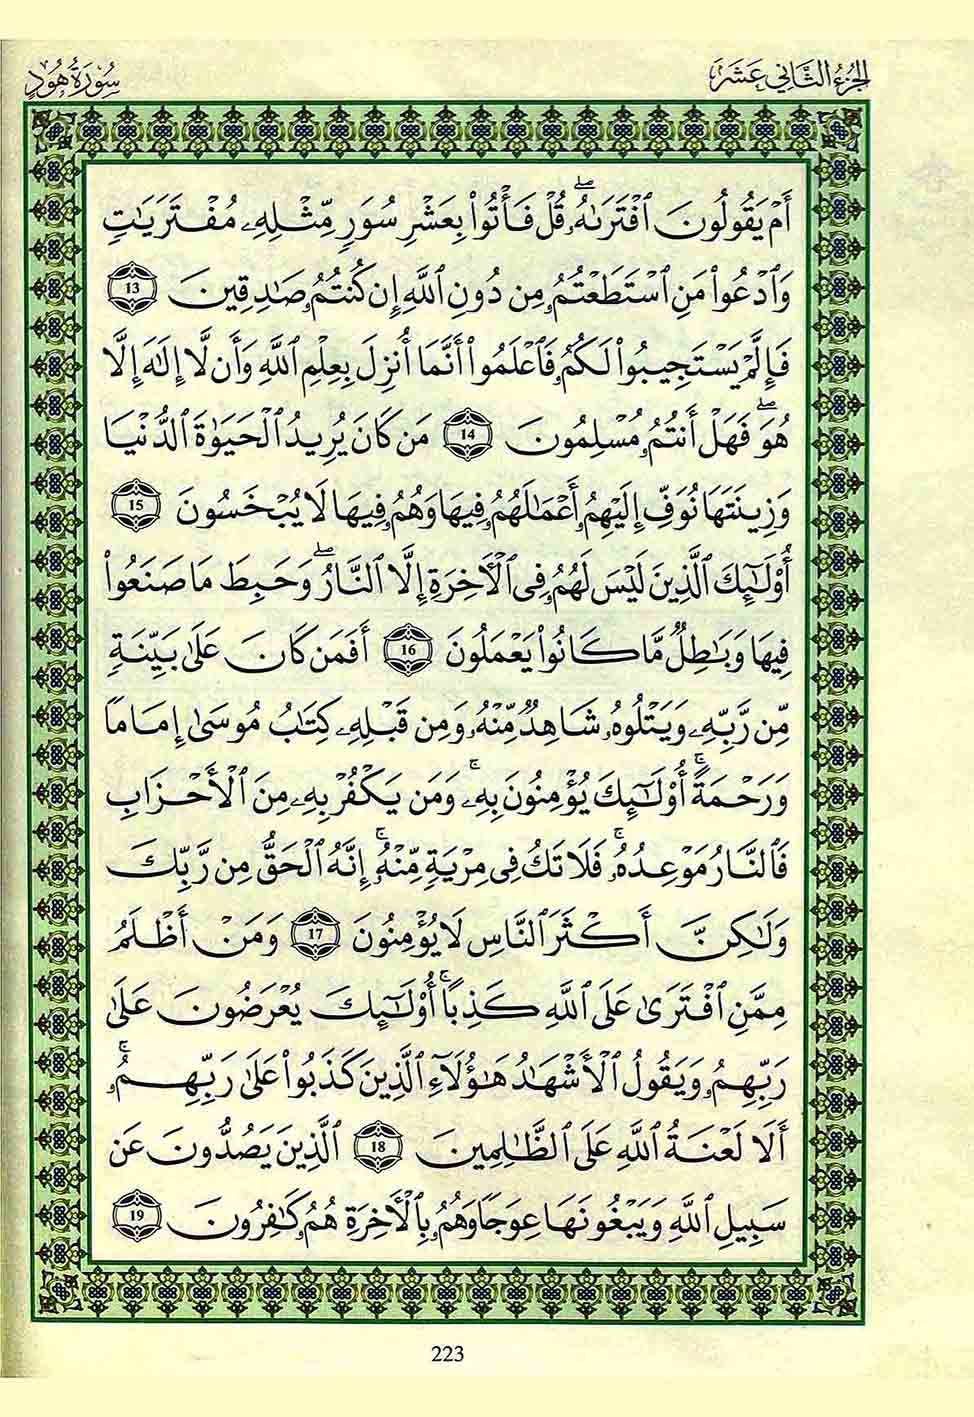 الجزء الثاني عشر
سورة هود
أَمْ يَقُولُونَ ٱفْتَرَىٰهُۖ قُلْ فَأْتُوا۟ بِعَشْرِ سُوَرٍ مِّثْلِهِۦ مُفْتَرَيَٰتٍ
وَٱدْعُوا۟ مَنِ ٱسْتَطَعْتُمُۥ مِن دُونِ ٱللَّهِ إِن كُنتُمُۥ صَٰدِقِينَ 13
فَإِلَّمْ يَسْتَجِيبُوا۟ لَكُمُۥ فَٱعْلَمُوا۟ أَنَّمَا أُنزِلَ بِعِلْمِ ٱللَّهِ وَأَن لَّا إِلَٰهَ إِلَّا
هُوَۖ فَهَلْ أَنتُمُۥ مُسْلِمُونَ 14 مَن كَانَ يُرِيدُ ٱلْحَيَوٰةَ ٱلدُّنْيَا
وَزِينَتَهَا نُوَفِّ إِلَيْهِمُۥ أَعْمَٰلَهُمُۥ فِيهَا وَهُمُۥ فِيهَا لَا يُبْخَسُونَ 15
أُو۟لَٰٓئِكَ ٱلَّذِينَ لَيْسَ لَهُمُۥ فِى ٱلْأَخِرَةِ إِلَّا ٱلنَّارُۖ وَحَبِطَ مَا صَنَعُوا۟
فِيهَا وَبَٰطِلٌ مَّا كَانُوا۟ يَعْمَلُونَ 16 أَفَمَن كَانَ عَلَىٰ بَيِّنَةٍ
مِّن رَّبِّهِۦ وَيَتْلُوهُۥ شَاهِدٌ مِّنْهُۥ وَمِن قَبْلِهِۦ كِتَٰبُ مُوسَىٰ إِمَامًا
وَرَحْمَةًۚ أُو۟لَٰٓئِكَ يُؤْمِنُونَ بِهِۦۚ وَمَن يَكْفُرْ بِهِۦ مِنَ ٱلْأَحْزَابِ
فَٱلنَّارُ مَوْعِدُهُۥۚ فَلَا تَكُ فِى مِرْيَةٍ مِّنْهُۥۚ إِنَّهُ ٱلْحَقُّ مِن رَّبِّكَ
وَلَٰكِنَّ أَكْثَرَ ٱلنَّاسِ لَا يُؤْمِنُونَ 17 وَمَنْ أَظْلَمُ
مِمَّنِ ٱفْتَرَىٰ عَلَى ٱللَّهِ كَذِبًاۚ أُو۟لَٰٓئِكَ يُعْرَضُونَ عَلَىٰ
رَبِّهِمُۥ وَيَقُولُ ٱلْأَشْهَٰدُ هَٰؤُلَآءِ ٱلَّذِينَ كَذَبُوا۟ عَلَىٰ رَبِّهِمُۥۚ
أَلَا لَعْنَةُ ٱللَّهِ عَلَى ٱلظَّٰلِمِينَ 18 ٱلَّذِينَ يَصُدُّونَ عَن
سَبِيلِ ٱللَّهِ وَيَبْغُونَهَا عِوَجًا وَهُمُۥ بِٱلْأَخِرَةِ هُمُۥ كَٰفِرُونَ 19
223